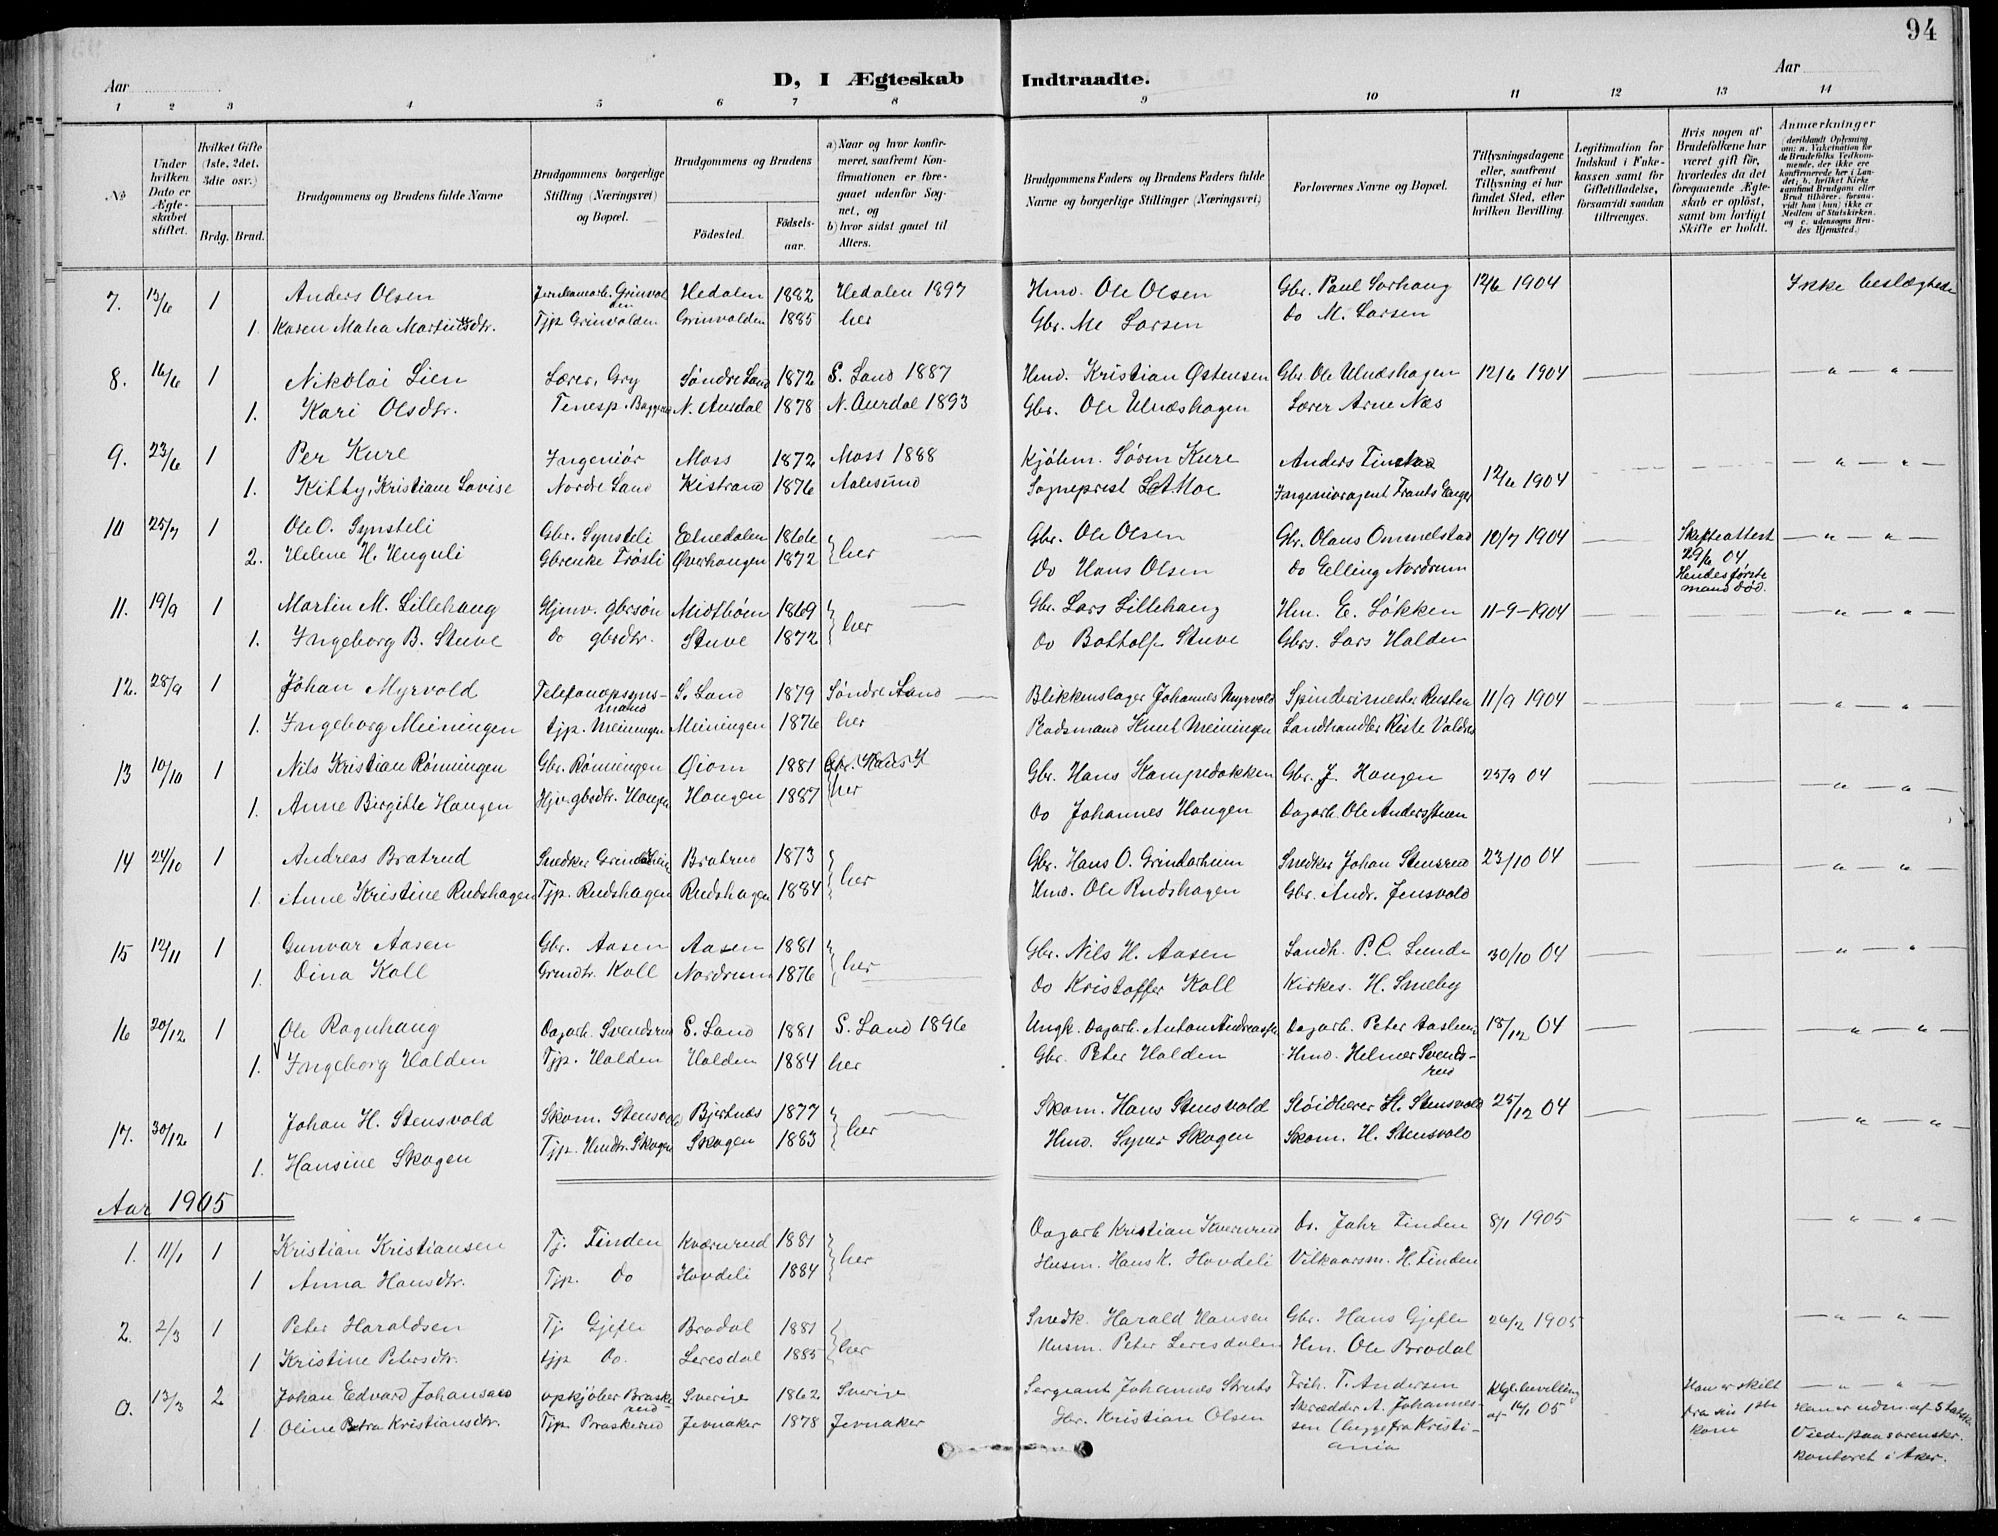 94
D, I Ægteskab Indtraadte.
Aar Aar
1 2 3 4 5 6 7 8 9 10 11 12 13 14
No
Under hvilken Dato er Ægteskabet stiftet.
Hvilket Gifte (1ste, 2det, 3die osv.)
Brdg. Brud.
Brudgommens og Brudens fulde Navne
Brudgommens borgerlige Stilling (Næringsvei) og Bopæl.
Brudgommens og Brudens
Födested. Födselsaar.
a) Naar og hvor konfirmeret, saafremt Konfirmationen er foregaaet udenfor Sognet, og
b) hvor sidst gaaet til Alters.
Brudgommens Faders og Brudens Faders fulde Navne og borgerlige Stillinger (Næringsvei)
Forlovernes Navne og Bopæl.
Tillysningsdagene eller, saafremt Tillysning ei har fundet Sted, efter hvilken Bevilling.
Legitimation for Indskud i Enkekassen samt for Giftetilladelse, forsaavidt saadan tiltrænges.
Hvis nogen af Brudefolkene har været gift før, hvorledes da det foregaaende Ægteskab er oplöst, samt om lovligt Skifte er holdt.
Anmærkninger
(deriblandt Oplysning om: a. Vakcination for de Brudefolks Vedkommende, der ikke ere konfirmerede her i Landet; b. hvilket Kirkesamfund Brudgom eller Brud tilhörer, forsaavidt han (hun) ikke er Medlem af Statskirken, og c. udensogns Brudes Hjemsted.)
7. 13/6 1 Anders Olsen Hedalen 1882 Hedalen 1897 Hmd. Ole Olsen Gbr. Paul Sorhaug 12/6 1904 Ikke beslægtede
1. Karen Mathea Tjp Grinvolden Grinvolden 1885 her Gbr. Larsen Do M. Larsen
8. 16/6 1 Nikolai Lien Lærer, Gry Søndre Land 1872 S. Land 1887 Hmd. Kristian Østensen Gbr. Ole Ulnæshagen 12/6 1904 — " — "
1. Kari Olsdtr. N. Aurdal 1878 N. Aurdal 1893 Gbr. Ole Ulnæshagen Lærer Arne Næs
9. 23/6 1 Per Kure Ingeniør Moss 1872 Moss 1888 Kjøbm. Søren Kure Anders 12/6 1904 — " — "
1. Kitty, Kristiane Lovise Nordre Land Kistrand 1876 Aalesund Sogneprest Moe Ingeniøragent Frants
10 25/7 1 Ole O. Synsteli Gbr. Synsteli Etnedalen 1866 her Gbr. Ole Olsen Gbr. Olaus Ommelstad 10/7 1904 Skifteattest 29/6 04 Hendes første mand død. — " — "
2. Helene H. Huguli Gbrenke Frøsli Øverhaugen 1872 Do Hans Olsen Do Elling Nordrum
11. 19/9 1 Martin M. Lillehaug Hjmv. gbrsøn Midtbøen 1869 her Gbr. Lars Lillehaug Hm. E. Løkken 11-9-1904 — " — "
1. Ingeborg B. Stuve Do gbrdtr. Stuve 1872 Do Bottolf Stuve Gbrs. Lars Halden
12. 28/9 1 Johan Myrvold Telefonopsyns-
mand S. Land 1879 Søndre Land Blikkenslager Johannes Myrvold Spinderimester 11/9 1904 — " — "
1. Ingeborg Meiningen tjp. Meiningen Meiningen 1876 her Radsmand Knut Meiningen Landhandler Riste Valdres
13 10/10 1 Nils Kristian Rønningen Gbr. Rønningen 1881 her Gbr. Hans Kampedokken Gbr. J. Haugen 25/9 04 — " — "
1. Anne Birgitte Haugen Hjv. gbrdtr. Haugen Haugen 1887 Do Johannes Haugen Dagarb. Ole
14 24/10 1 Andreas Bratrud Snedker Bratrud 1873 her Gbr. Hans O. Grindarheim Snedker Johan Stensrud 23/10 04 — " — "
1. Anne Kristine Rudshagen Tjp. Rudshagen Rudshagen 1884 Hmd. Ole Rudshagen Gbr. Andr. Jensvold
15 12/11 1 Gunvar Aasen Gbr. Aasen Aasen 1881 her Gbr. Nils H. Aasen Landh. P.C. Lunde 30/10 04 — " — "
1. Dina Koll Grmdtr. Koll Nordrum 1876 Do Kristoffer Koll Kirkes. H. Smeby
16 20/12 1 Ole Rognhaug Dagarb. Svendsrud S. Land 1881 S. Land 1896 Ungk. Dagarb. Anton Dagarb. Peter 18/12 04 — " — "
1. Ingeborg Halden Tjp. Halden Halden 1884 her Gbr. Peter Halden Hmd. Helmer Svends-
rud
17. 30/12 1 Johan H. Stensvold Skom. Stensvold Bjertnæs 1877 her Skom. Hans Stensvold Sløidlærer H. Stensvold 25/12 04 — " — "
1. Hansine Skogen Tjp. Hmdtr. Skogen Skogen 1883 Hmd. Syver Skogen Skom. H. Stensvold
Aar 1905
1. 11/1 1 Kristian Kristiansen Tj. Finden Kværnrud 1881 her Dagarb Kristian Kværnrud Do. Jahr Finden 8/1 1905 — " — "
1 Anna Hansdtr. Tjp. Do Hovdeli 1884 Husm. Hans K. Hovdeli Vilkaarsm. H. Finden
2. 2/3 1 Peter Haraldsen Tj. Gjefle Brodal 1881 her Snedk. Harald Hansen Gbr. Hans Gjefle 26/2 1905 — " — "
1 Kristine Petersdtr. tjp Do. Leresdal 1885 Husm. Peter Leresdalen Hm. Ole Brodal
0. 13/3 2 Johan Edvard Johansson opkjøber Braske-
rud Sverige 1862 Sverige Sergeant Johannes Frih. T. Andersen Kgl. bevilling af 16/1 05 Han er skilt fra sin 1ste kone — " — "
1 Oline Petra Kristiansdtr. Tjp. Braskerud Jevnaker 1878 Jevnaker Gbr. Kristian Olsen Skrædder A. Johannes-
sen (begge fra Kristi-
ania
Han er udm. af Statsk.
Viede paa sorenskr.
kontoret i Aker.